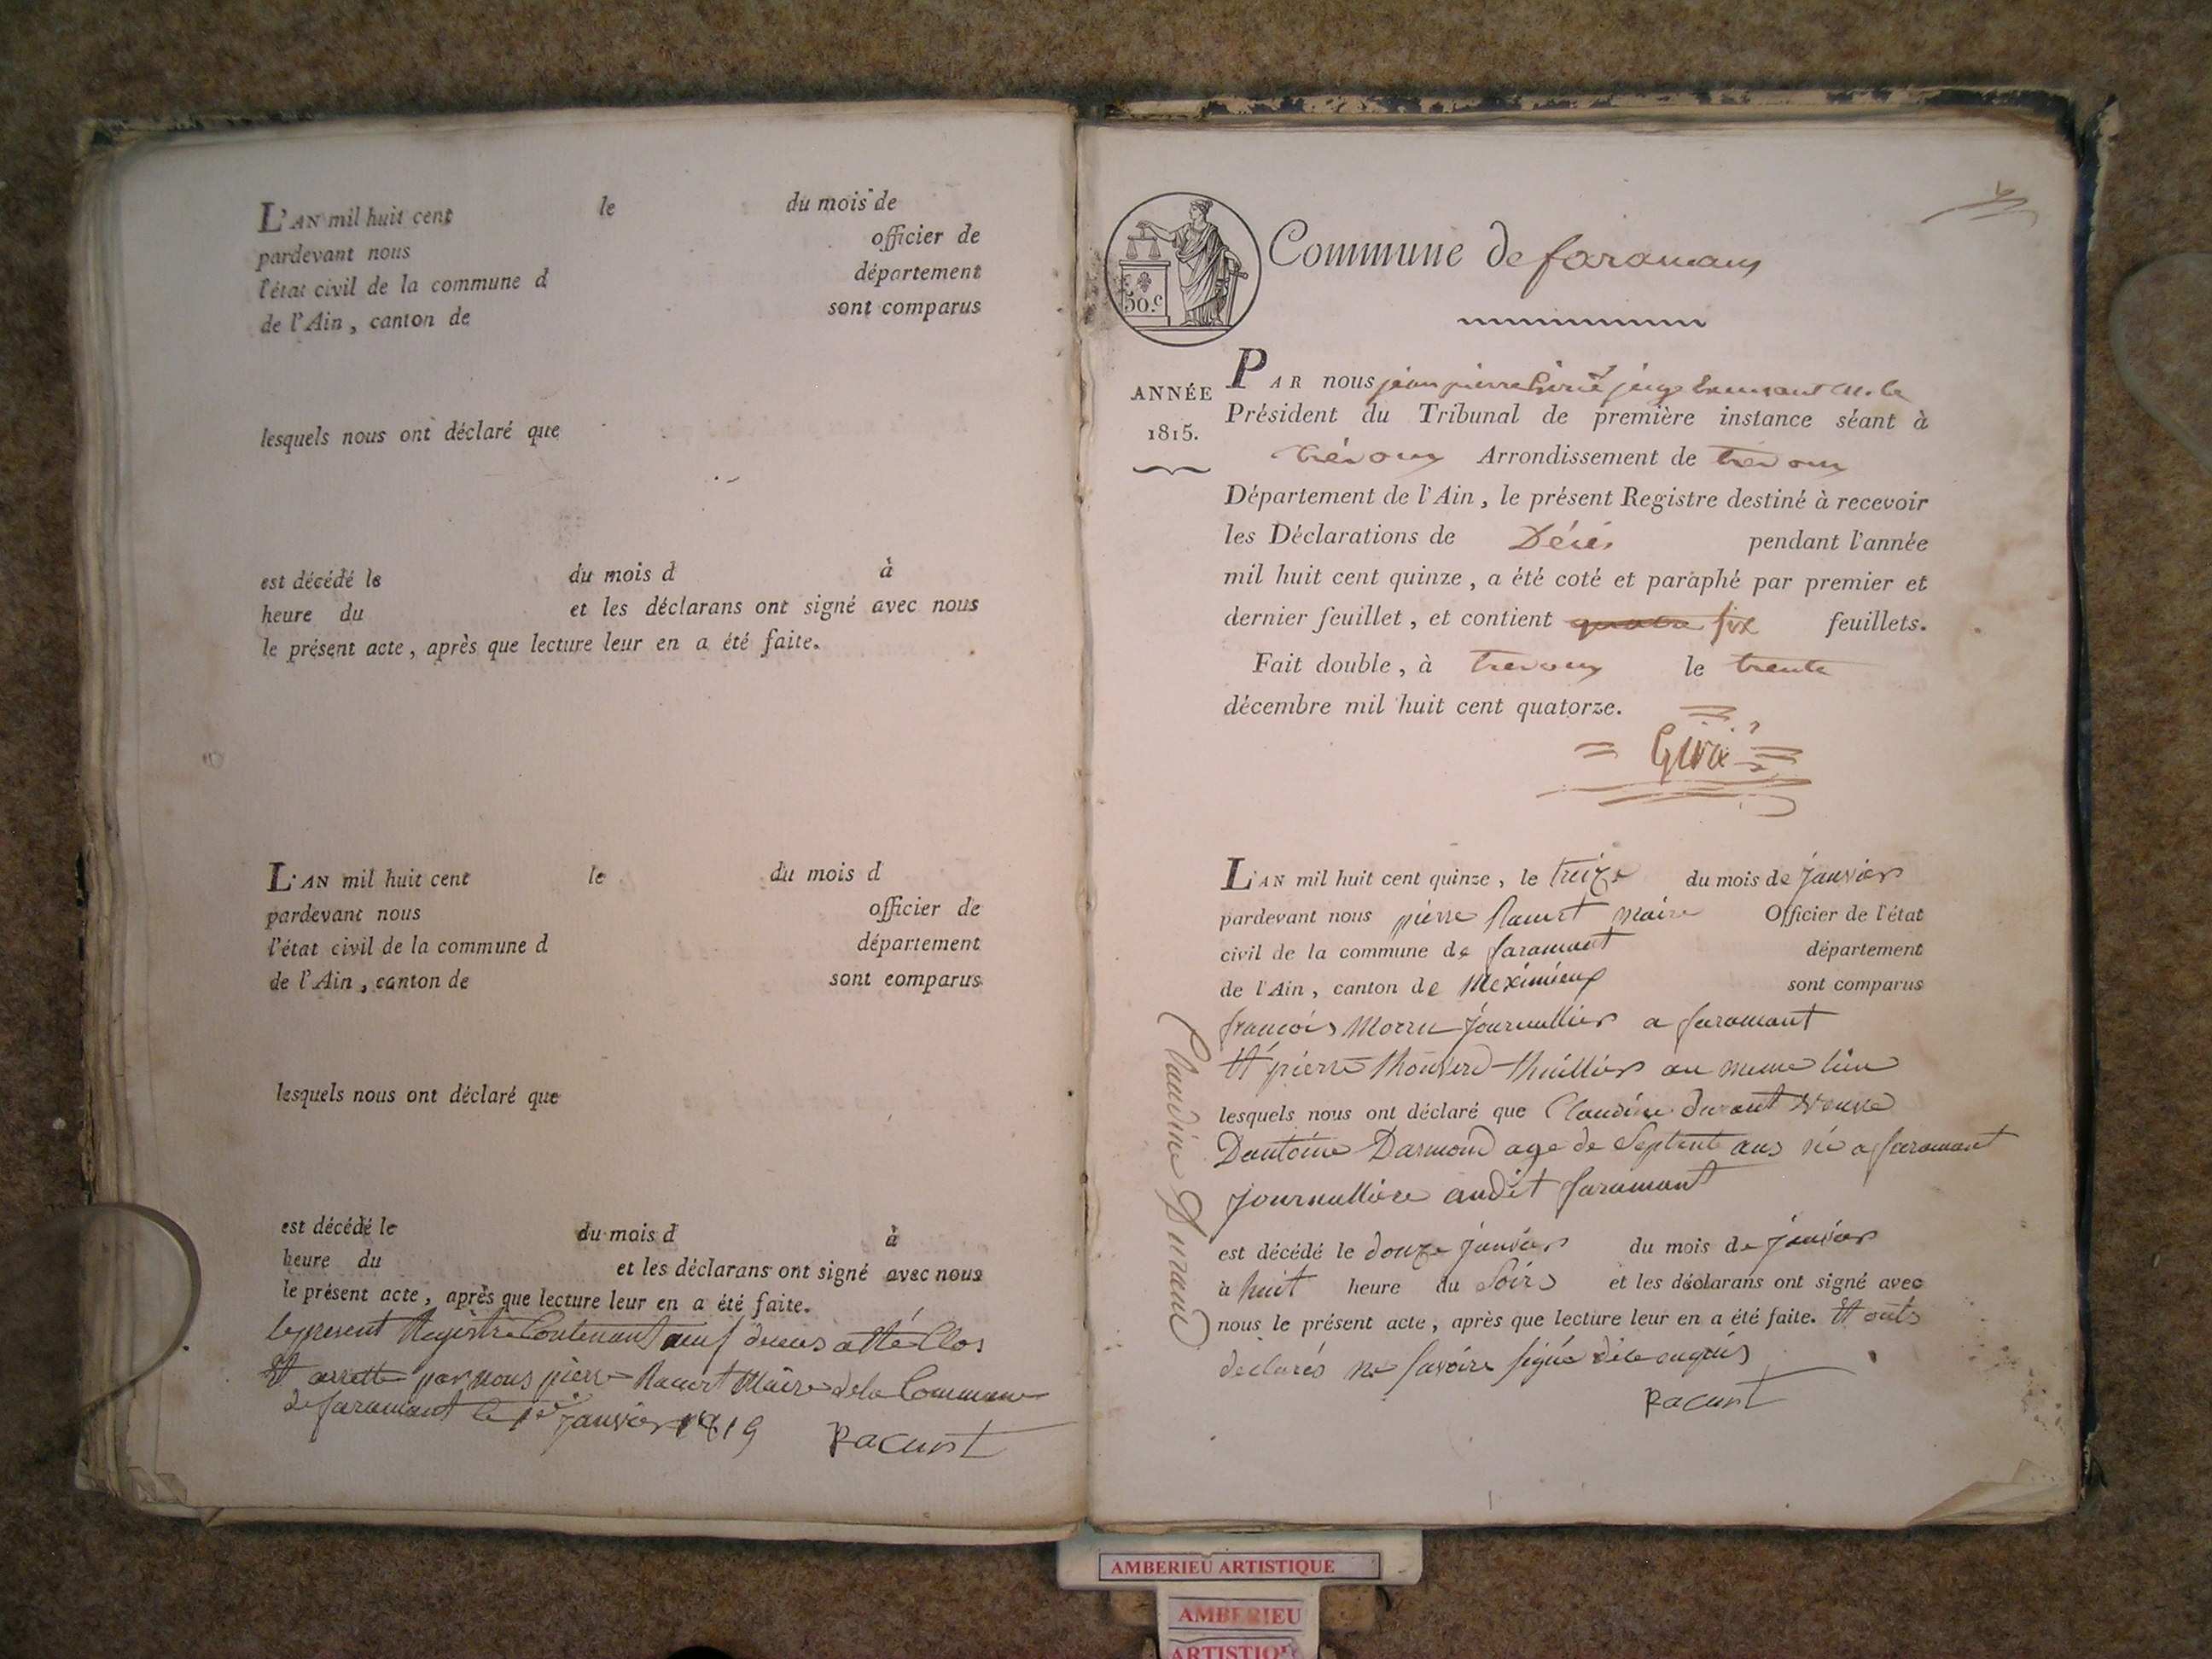 L'AN mil huit cent le du mois de
pardevant nous officier de
l'état civil de la commune d département
de l'Ain, canton de sont comparus
lesquels nous ont déclaré que
est décédé le du mois d à
heure du et les déclarans ont signé avec nous
le présent acte, après que lecture leur en a été faite.
L'AN mil huit cent le du mois d
pardevant nous officier de
l'état civil de la commune d département
de l'Ain, canton de sont comparus
lesquels nous ont déclaré que
est décédé le du mois d à
heure du et les déclarans ont signé avec nous
le présent acte, après que lecture leur en a été faite.
le present Registre Contenant neuf deces a été Clos
Et arretté par nous pierre Racurt Maire de la Commune
de faramant le 1er janvier 1819 Racurt
50.c
Commune de faramans
ANNÉE
1815.
PAR nous jean pierre juge
Président du Tribunal de première instance séant à
trévoux Arrondissement de trevoux
Département de l'Ain, le présent Registre destiné à recevoir
les Déclarations de Décès pendant l'année
mil huit cent quinze, a été coté et paraphé par premier et
dernier feuillet, et contient quatre six feuillets.
Fait double, à trevoux le trente
décembre mil huit cent quatorze.
L'AN mil huit cent quinze, le treize du mois de janvier
pardevant nous pierre Racurt maire Officier de l'état
civil de la commune de faramant département
de l'Ain, canton de Meximieux sont comparus
francois journallier a faramant
Et pierre thuillier au meme lieu
lesquels nous ont déclaré que Claudine durant veuve
Dantoine Darmond age de Septente ans né a faramant
journallière audit faramant
est décédé le douze janvier du mois de janvier
à huit heure du Soirs et les déclarans ont signé avec
nous le présent acte, après que lecture leur en a été faite. Et onts
declarés ne Savoire signé de ce enquis
Racurt
Claudine Durand
AMBERIEU ARTISTIQUE
AMBERIEU
ARTISTIQUE